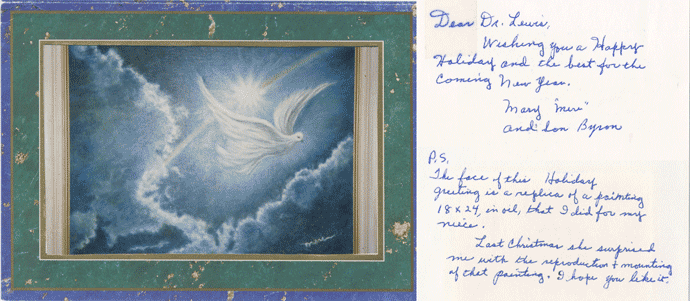 Dear Dr. Lewis,
Wishing you a Happy
Holiday and the best for the
Coming New Year.
Mary "Meri"
and Son Byron
P.S.
The face of this Holiday
greeting is a replica of a painting
18 x 24, in oil, that I did for my
niece.
Last Christmas she surprised
me with the reproduction + mounting
of that painting. I hope you like it.